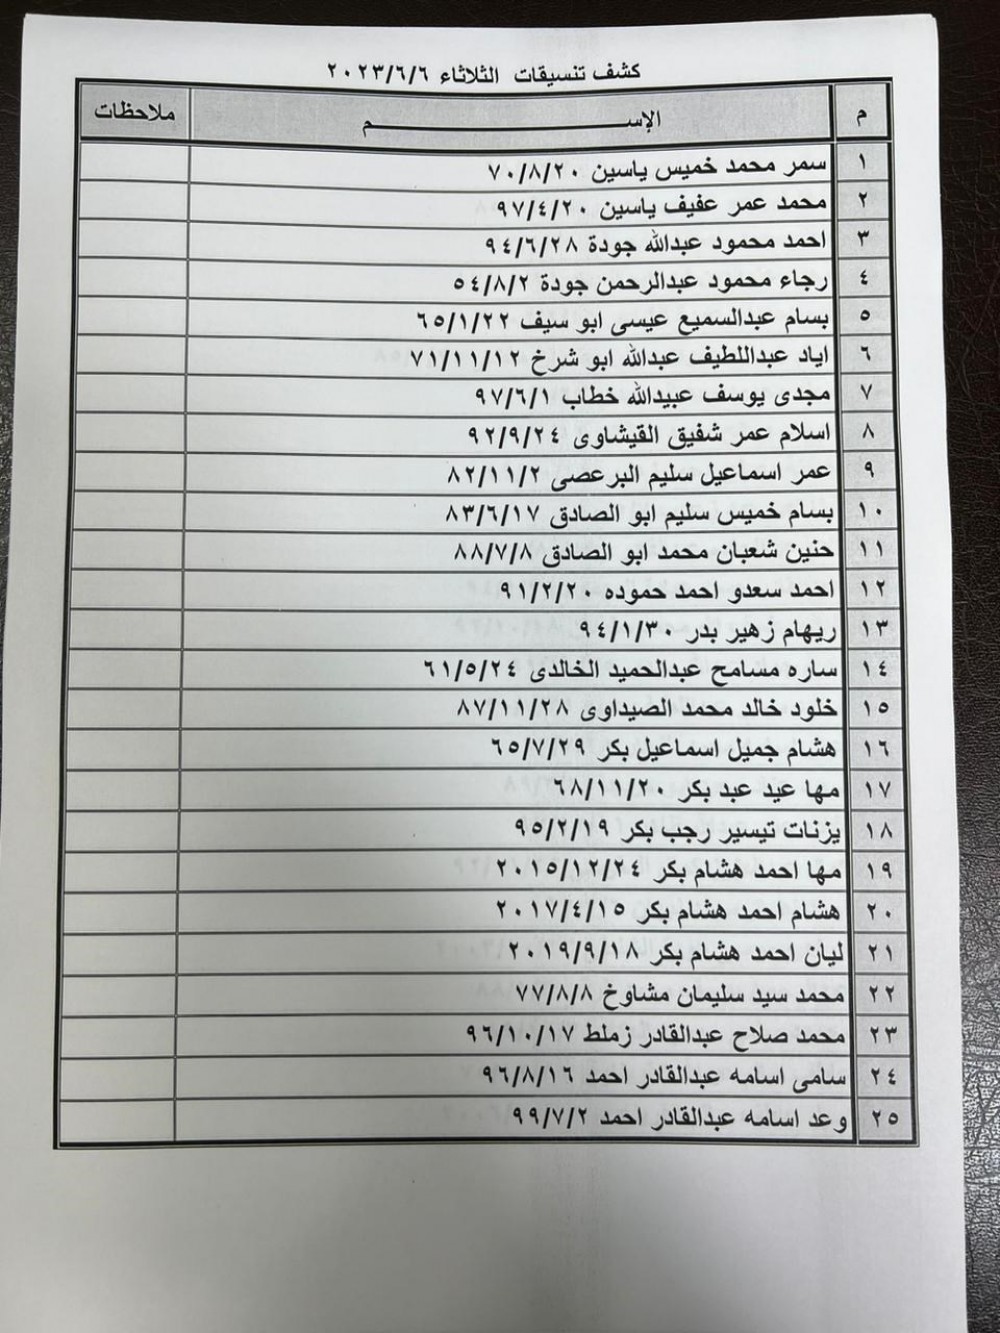 كشف تنسيقات الثلاثاء ٢٠٢٣/٦/٦
م الإســـم ملاحظات
١ سمر محمد خميس ياسين ٧٠/٨/٢٠
٢ محمد عمر عفيف ياسين ٩٧/٤/٢٠
٣ احمد محمود عبدالله جودة ٩٤/٦/٢٨
٤ رجاء محمود عبدالرحمن جودة ٥٤/٨/٢
٥ بسام عبدالسميع عيسى ابو سيف ٦٥/١/٢٢
٦ اياد عبداللطيف عبدالله ابو شرخ ٧١/١١/١٢
٧ مجدى يوسف عبيدالله خطاب ٩٧/٦/١
٨ اسلام عمر شفيق القيشاوى ٩٢/٩/٢٤
٩ عمر اسماعيل سليم البرعصى ٨٢/١١/٢
١٠ بسام خميس سليم ابو الصادق ٨٣/٦/١٧
١١ حنين شعبان محمد ابو الصادق ٨٨/٧/٨
١٢ احمد سعدو احمد حموده ٩١/٢/٢٠
١٣ ريهام زهير بدر ٩٤/١/٣٠
١٤ ساره مسامح عبدالحميد الخالدى ٦١/٥/٢٤
١٥ خلود خالد محمد الصيداوى ٨٧/١١/٢٨
١٦ هشام جميل اسماعيل بكر ٦٥/٧/٢٩
١٧ مها عيد عبد بكر ٦٨/١١/٢٠
١٨ يزنات تيسير رجب بكر ٩٥/٢/١٩
١٩ مها احمد هشام بكر ٢٠١٥/١٢/٢٤
٢٠ هشام احمد هشام بكر ٢٠١٧/٤/١٥
٢١ ليان احمد هشام بكر ٢٠١٩/٩/١٨
٢٢ محمد سيد سليمان مشاوخ ٧٧/٨/٨
٢٣ محمد صلاح عبدالقادر زملط ٩٦/١٠/١٧
٢٤ سامى اسامه عبدالقادر احمد ٩٦/٨/١٦
٢٥ وعد اسامه عبدالقادر احمد ٩٩/٧/٢